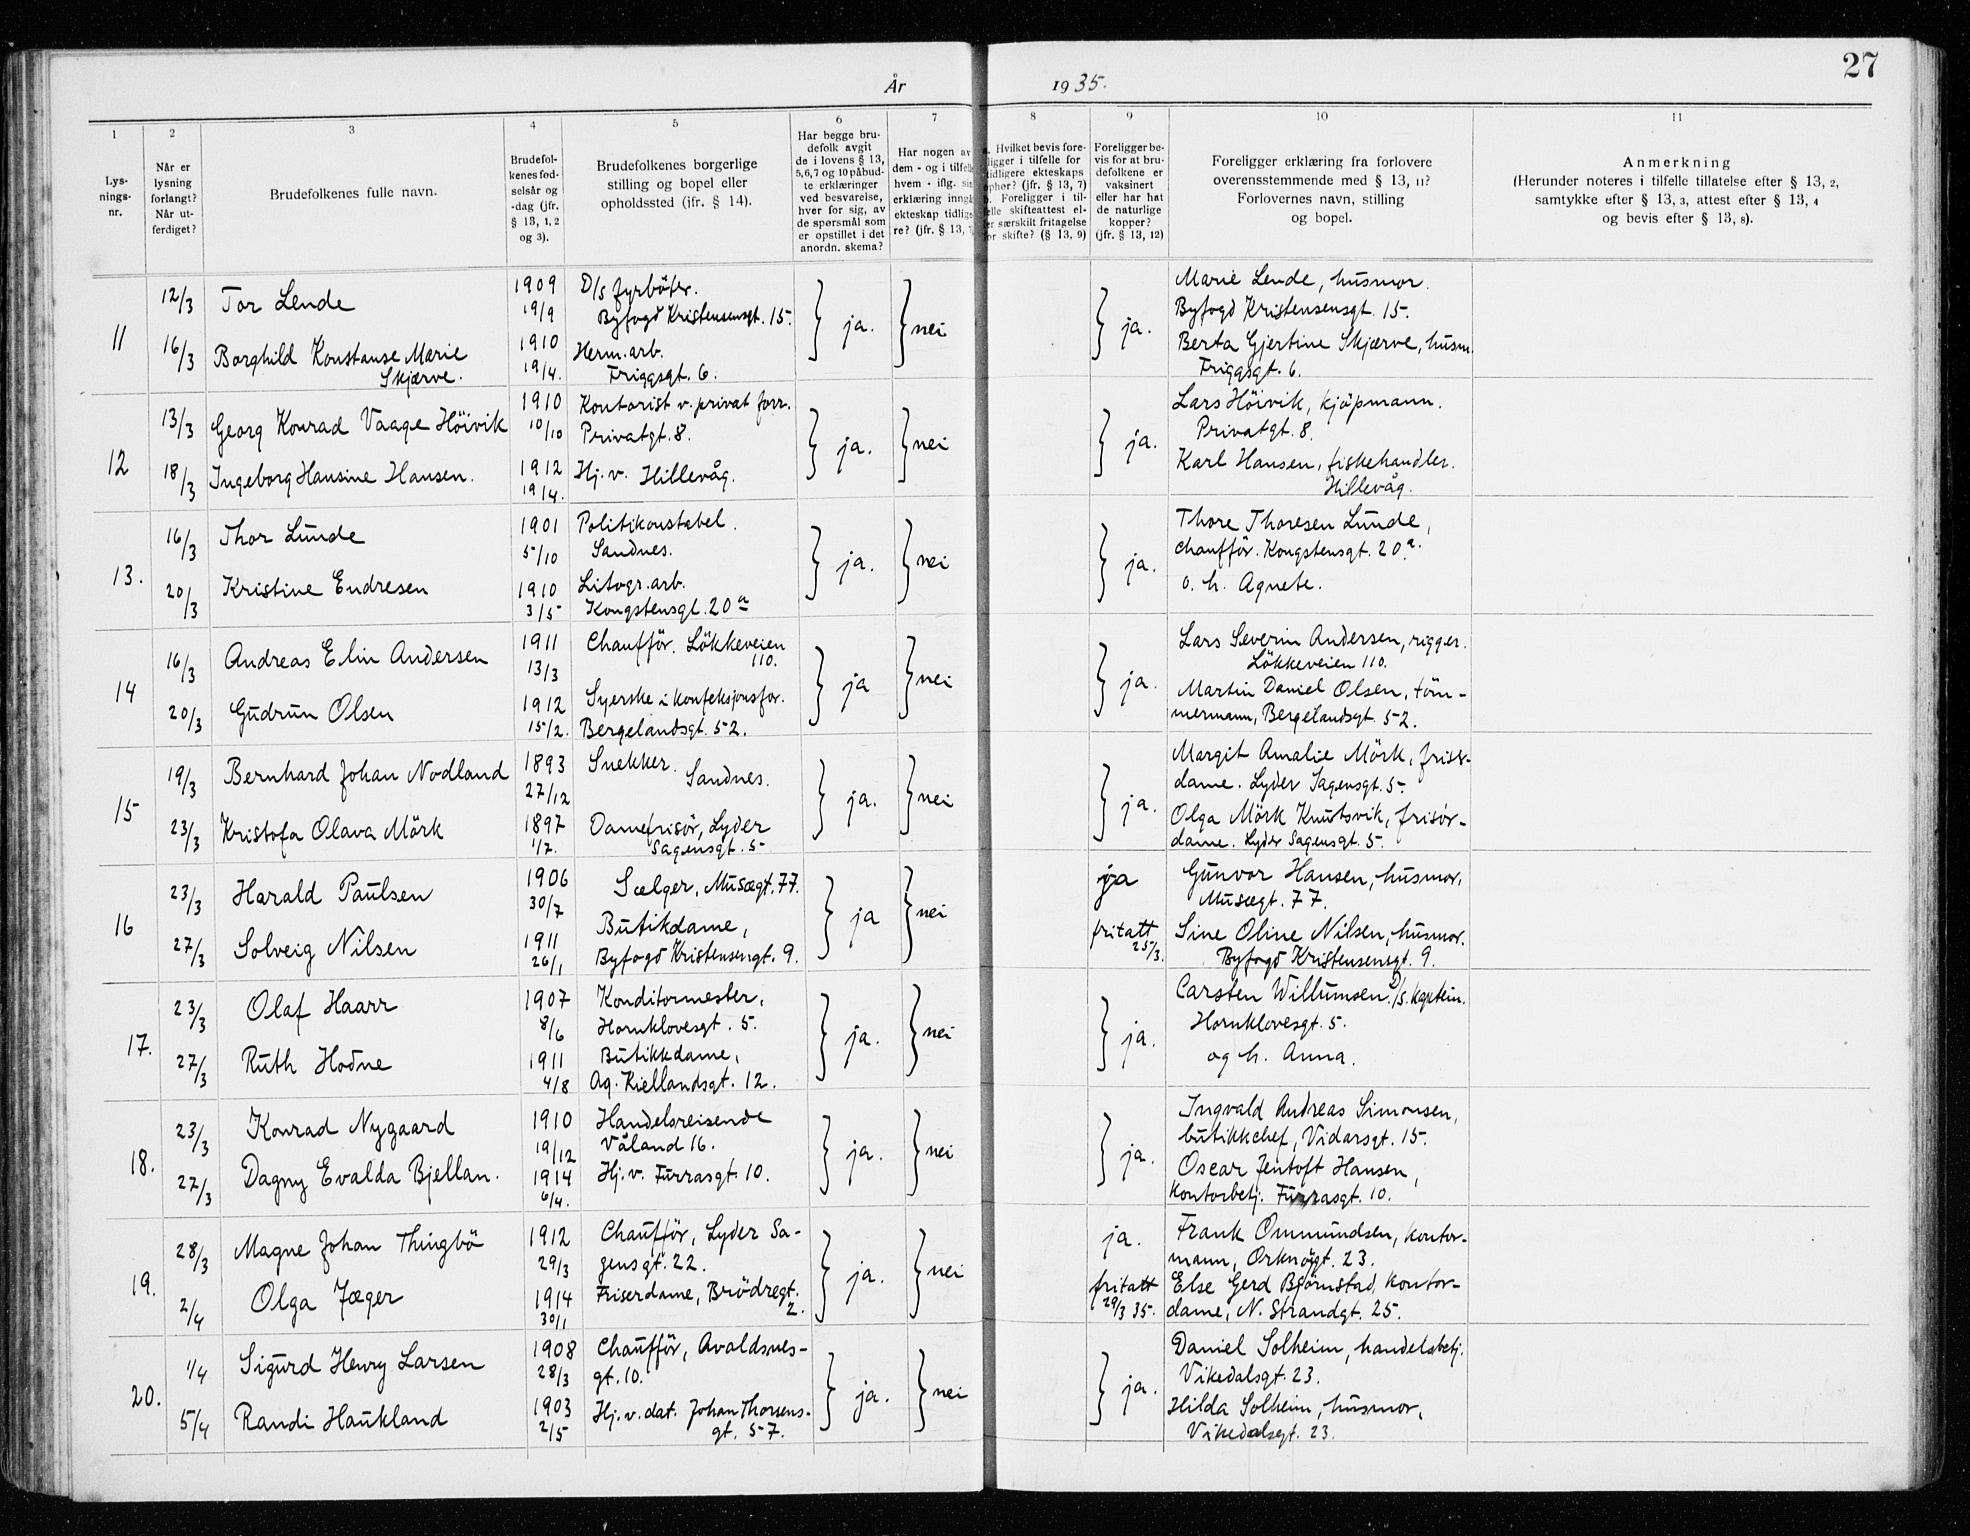 27
År 1935.
1 2 3 4 5 6 7 8 9 10 11
Lys-
nings-
nr.
Når er
lysning
forlangt?
Når ut-
ferdiget?
Brudefolkenes fulle navn.
Brudefol-
kenes fød-
selsår og
-dag (jfr.
§ 13, 1, 2
og 3).
Brudefolkenes borgerlige
stilling og bopel eller
opholdssted (jfr. § 14).
Har begge bru-
defolk avgit
de i lovens § 13,
5, 6, 7 og 10 påbud-
te erklæringer
ved besvarelse,
hver for sig, av
de spørsmål som
er opstillet i det
anordn. skema?
Har nogen av
dem - og i tilfelle
hvem - iflg. sin
erklæring inngå
ekteskap tidlige-
re? (jfr. § 13, 7
a. Hvilket bevis fore-
ligger i tilfelle for
tidligere ekteskaps
ophør? (jfr. § 13, 7)
b. Foreligger i til-
felle skifteattest el-
ler særskilt fritagelse
for skifte? (§ 13, 9)
Foreligger be-
vis for at bru-
defolkene er
vaksinert
eller har hat
de naturlige
kopper?
(jfr. § 13, 12)
Foreligger erklæring fra forlovere
overensstemmende med § 13, 11?
Forlovernes navn, stilling
og bopel.
Anmerkning
(Herunder noteres i tilfelle tillatelse efter § 13, 2,
samtykke efter § 13, 3, attest efter § 13, 4
og bevis efter § 13, 8).
11
12/3
16/3
Tor Lende
Borghild Konstanse Marie
Skjærve.
1909
19/9
1910
19/4.
D/s fyrböter.
Byfogd Kristensensgt. 15.
Herm. arb.
Friggsgt. 6.
ja.
nei
ja.
Marie Lende, husmor.
Byfogd Kristensensgt. 15.
Berta Gjertine Skjærve, husm.
Friggsgt. 6.
12
13/3
18/3
Georg Konrad Vaage Höivik
Ingeborg Hansine Hansen.
1910
10/10
1912
19/4.
Kontorist v. privat forr.
Privatgt. 8.
Hj. v. Hillevåg.
ja.
nei
ja.
Lars Höivik, kjöpmann.
Privatgt. 8.
Karl Hansen, fiskehandler.
Hillevåg.
13.
16/3
20/3
Thor Lunde
Kristine Endresen
1901
5/10
1910
3/5
Politikonstabel.
Sandnes.
Litogr. arb.
Kongstensgt. 20a
ja.
nei
ja.
Thore Thoresen Lunde,
chaufför. Kongstensgt. 20a.
o. h. Agnete.
14
16/3
20/3
Andreas Elin Andersen
Gudrun Olsen
1911
13/3
1912
15/2.
Chaufför. Lökkeveien
110.
Syerske i konfeksjonsfor.
Bergelandsgt. 52.
ja
nei
ja.
Lars Severin Andersen, rigger.
Lökkeveien 110.
Martin Daniel Olsen, töm-
mermann, Bergelandsgt. 52.
15
19/3
23/3
Bernhard Johan Nodland
Kristofa Olava Mörk
1893
27/12
1897
1/7.
Snekker.
Sandnes.
Damefrisör, Lyder
Sagensgt. 5
ja.
nei
ja.
Margit Amalie Mörk, frisör-
dame. Lyder Sagensgt. 5.
Olga Mörk Knutsvik, frisör-
dame. Lyder Sagensgt. 5.
16
23/3
27/3
Harald Paulsen
Solveig Nilsen
1906
30/7
1911
26/1
Sælger, Musægt. 77.
Butikdame,
Byfogd Kristensengt. 9.
ja
nei
ja
fritatt
25/3.
Gunvor Hansen, husmor,
Musægt. 77.
Sine Oline Nilsen, husmor.
Byfogd Kristensensgt. 9.
17.
23/3
27/3
Olaf Haarr
Ruth Hodne
1907
8/6
1911
4/8
Konditormester,
Hornklovesgt. 5.
Butikkdame,
Ag. Kiellandsgt. 12.
ja.
nei
ja.
Carsten Willumsen D/s. kaptein.
Hornklovesgt. 5.
og h. Anna.
18.
23/3
27/3
Konrad Nygaard
Dagny Evalda Bjellan.
1910
19/12
1914
6/4.
Handelsreisende
Våland 16.
Hj. v. Furrasgt. 10.
ja.
nei
ja.
Ingvald Andreas Simonsen,
butikkchef, Vidarsgt. 15.
Oscar Jentoft Hansen,
kontorbetj. Furrasgt. 10.
19.
28/3
2/4
Magne Johan Thingbö
Olga Jæger
1912
29/3
1914
30/1
Chaufför, Lyder Sa-
gensgt. 22.
Friserdame, Brödregt.
2.
ja.
nei
ja.
fritatt
29/3 35.
Frank Ommundsen, kontor-
mann, Orknögt. 23.
Else Gerd Bjørnstad, kontor-
dame, N. Strandgt. 25.
20.
1/4
5/4
Sigurd Henry Larsen
Randi Haukland
1908
28/3
1903
2/5
Chaufför, Avaldsnes-
gt. 10.
Hj. v. dat. Johan Thorsens-
gt. 57.
ja.
nei
ja.
Daniel Solheim, handelsbetj.
Vikedalsgt. 23.
Hilda Solheim, husmor,
Vikedalsgt. 23.